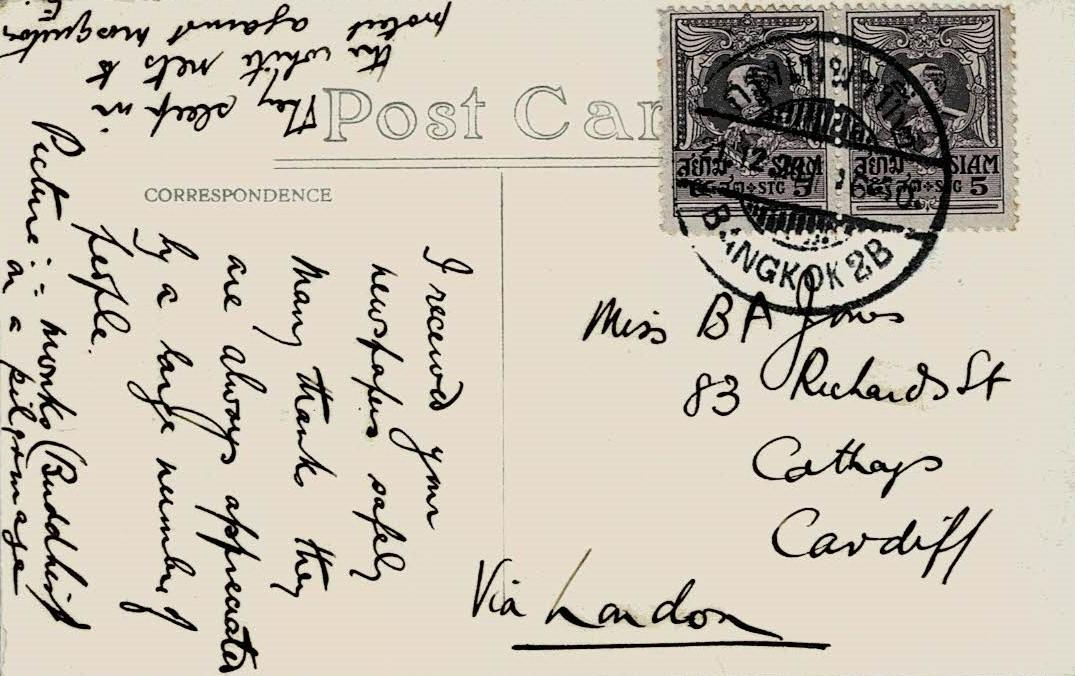 Post Car
CORRESPONDENCE
สยาม SIAM
STG 5
สยาม SIAM
STG 5
BANGKOK 2B
Miss B A Jones
83 Richards St
Cathays
Cardiff
Via London
I received your
newspapers safely
Many thanks they
are always appreciated
by a large number of
people.
Picture :- monks (Buddhist
on a pilgrimage
They sleep in
the white nets to
protect against mosquitos